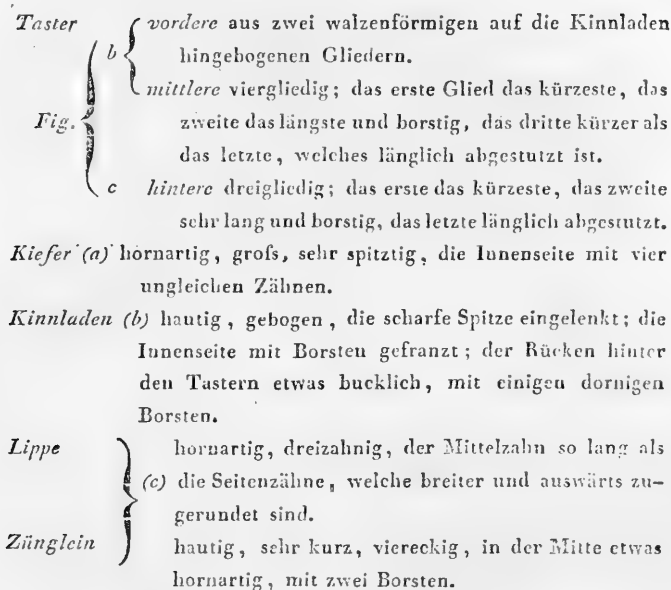 Taster vordere aus zwei walzenförmigen auf die Kinnladen
b hingebogenen Gliedern.
mittlere viergliedig; das erste Glied das kürzeste, das
Fig. zweite das längste und borstig, das dritte kürzer als
das letzte, welches länglich abgestutzt ist.
c hintere dreigliedig; das erste das kürzeste, das zweite
sehr lang und borstig, das letzte länglich abgestutzt.
Kiefer (a) hornartig, groſs, sehr spitztig, die Innenseite mit vier
ungleichen Zähnen.
Kinnladen (b) hautig, gebogen, die scharfe Spitze eingelenkt; die
Innenseite mit Borsten gefranzt; der Rücken hinter
den Tastern etwas bucklich, mit einigen dornigen
Borsten.
Lippe hornartig, dreizahnig, der Mittelzahn so lang als
(c) die Seitenzähne, welche breiter und auswärts zu-
gerundet sind.
Zünglein hautig, sehr kurz, viereckig, in der Mitte etwas
hornartig, mit zwei Borsten.